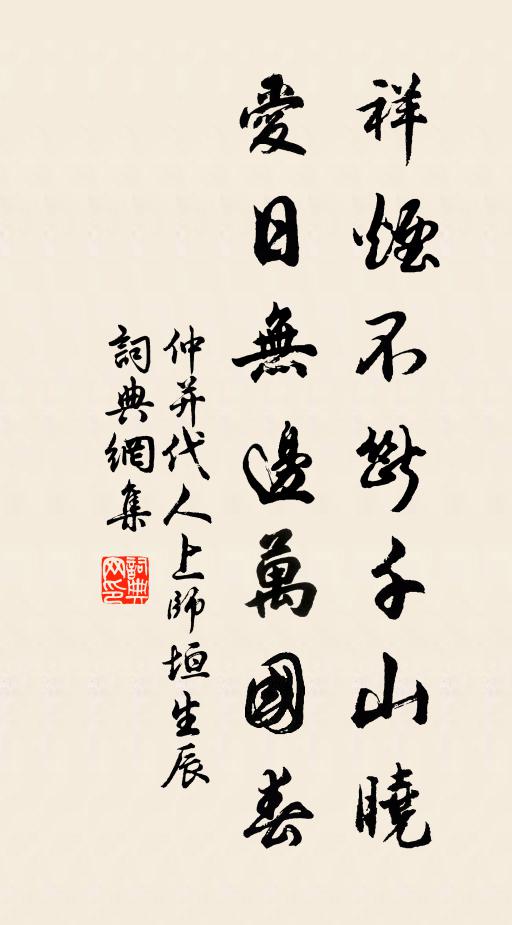 祥煙不斷千山曉
愛日無邊萬國春
仲并代人上師垣生辰
詞典網集
詞典网印